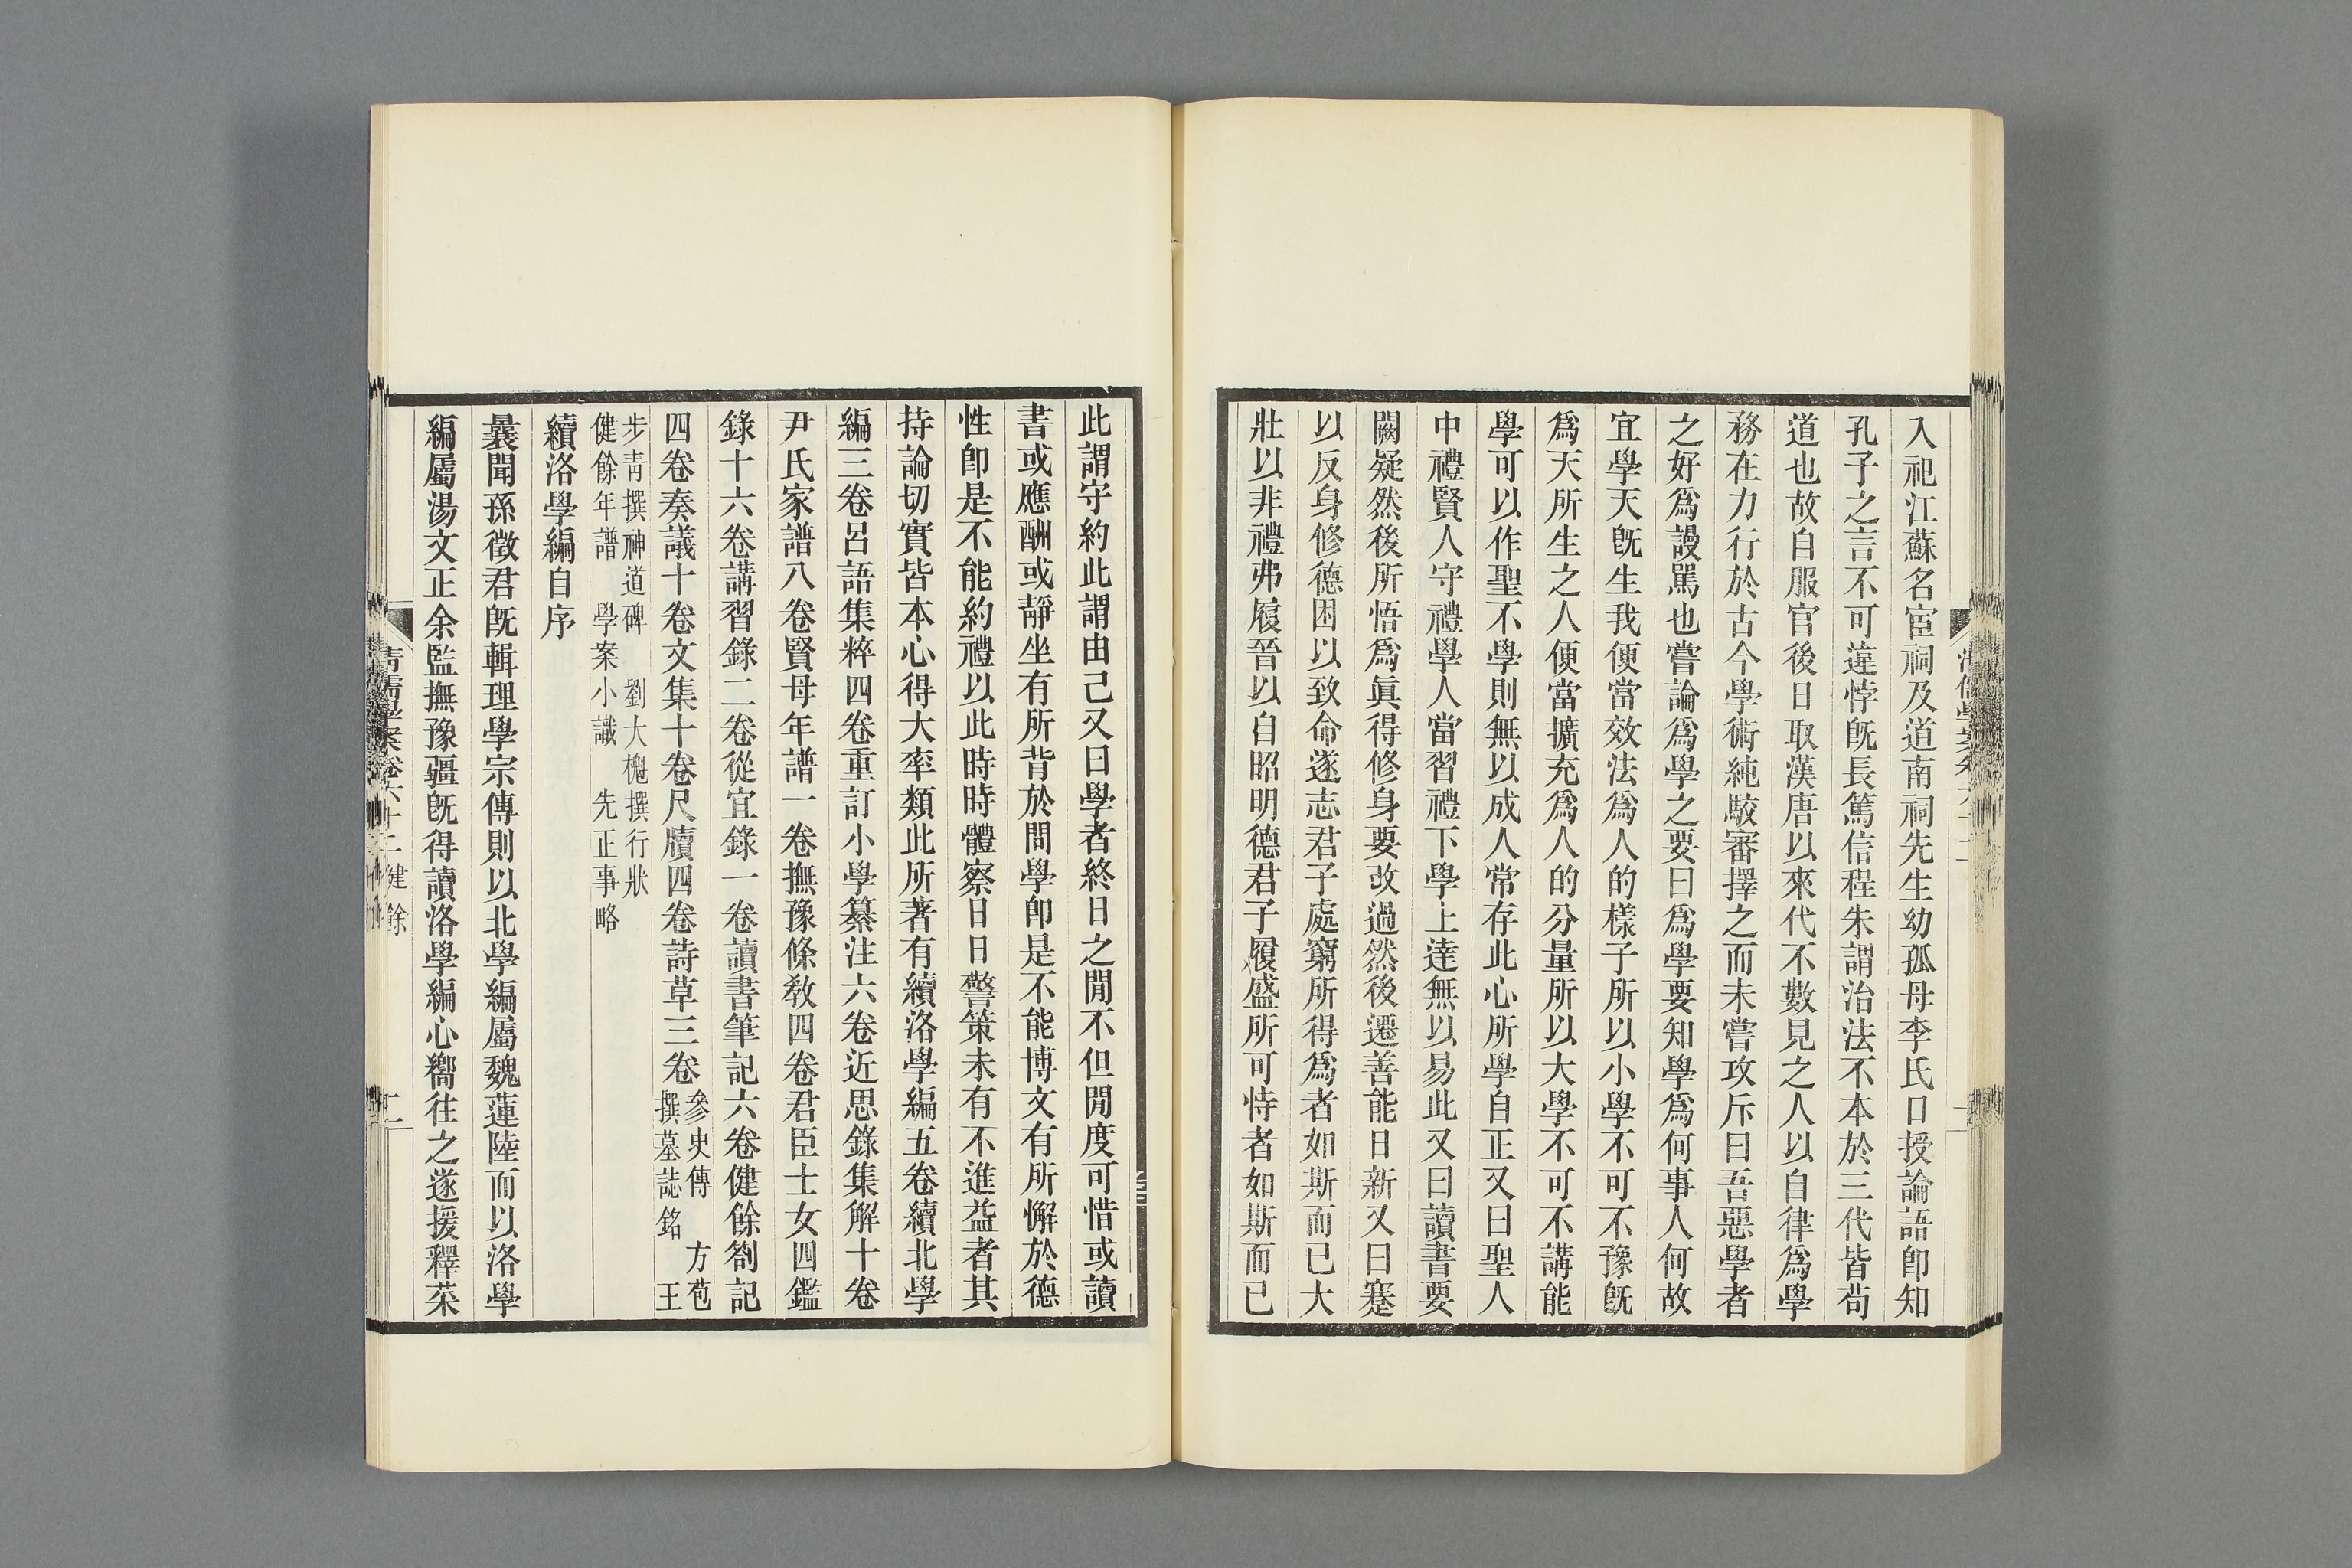 入祀江蘇名宦祠及道南祠先生幼孤母李氏口授論語卽知
孔子之言不可違悖旣長篤信程朱謂治法不本於三代皆苟
道也故自服官後日取漢唐以來代不數見之人以自律爲學
務在力行於古今學術純駮審擇之而未嘗攻斥曰吾惡學者
之好爲謾罵也嘗論爲學之要曰爲學要知學爲何事人何故
宜學天旣生我便當效法爲人的樣子所以小學不可不豫旣
爲天所生之人便當擴充爲人的分量所以大學不可不講能
學可以作聖不學則無以成人常存此心所學自正又曰聖人
中禮賢人守禮學人當習禮下學上達無以易此又曰讀書要
闕疑然後所悟爲眞得修身要改過然後遷善能日新又曰蹇
以反身修德困以致命遂志君子處窮所得爲者如斯而已大
壯以非禮弗履晉以自昭明德君子履盛所可恃者如斯而已
此謂守約此謂由己又曰學者終日之閒不但閒度可惜或讀
書或應酬或靜坐有所背於問學卽是不能博文有所懈於德
性卽是不能約禮以此時時體察日日警策未有不進益者其
持論切實皆本心得大率類此所著有續洛學編五卷續北學
編三卷呂語集粹四卷重訂小學纂注六卷近思錄集解十卷
尹氏家譜八卷賢母年譜一卷撫豫條敎四卷君臣士女四鑑
錄十六卷講習錄二卷從宜錄一卷讀書筆記六卷健餘劄記
四卷奏議十卷文集十卷尺牘四卷詩草三卷
參史傳 方苞
撰墓誌銘 王
步靑撰神道碑 劉大櫆撰行狀
健餘年譜 學案小識 先正事略
續洛學編自序
曩聞孫徵君旣輯理學宗傳則以北學編屬魏蓮陸而以洛學
編屬湯文正余監撫豫疆旣得讀洛學編心嚮往之遂援釋菜
清儒學案卷六十二 健餘
二